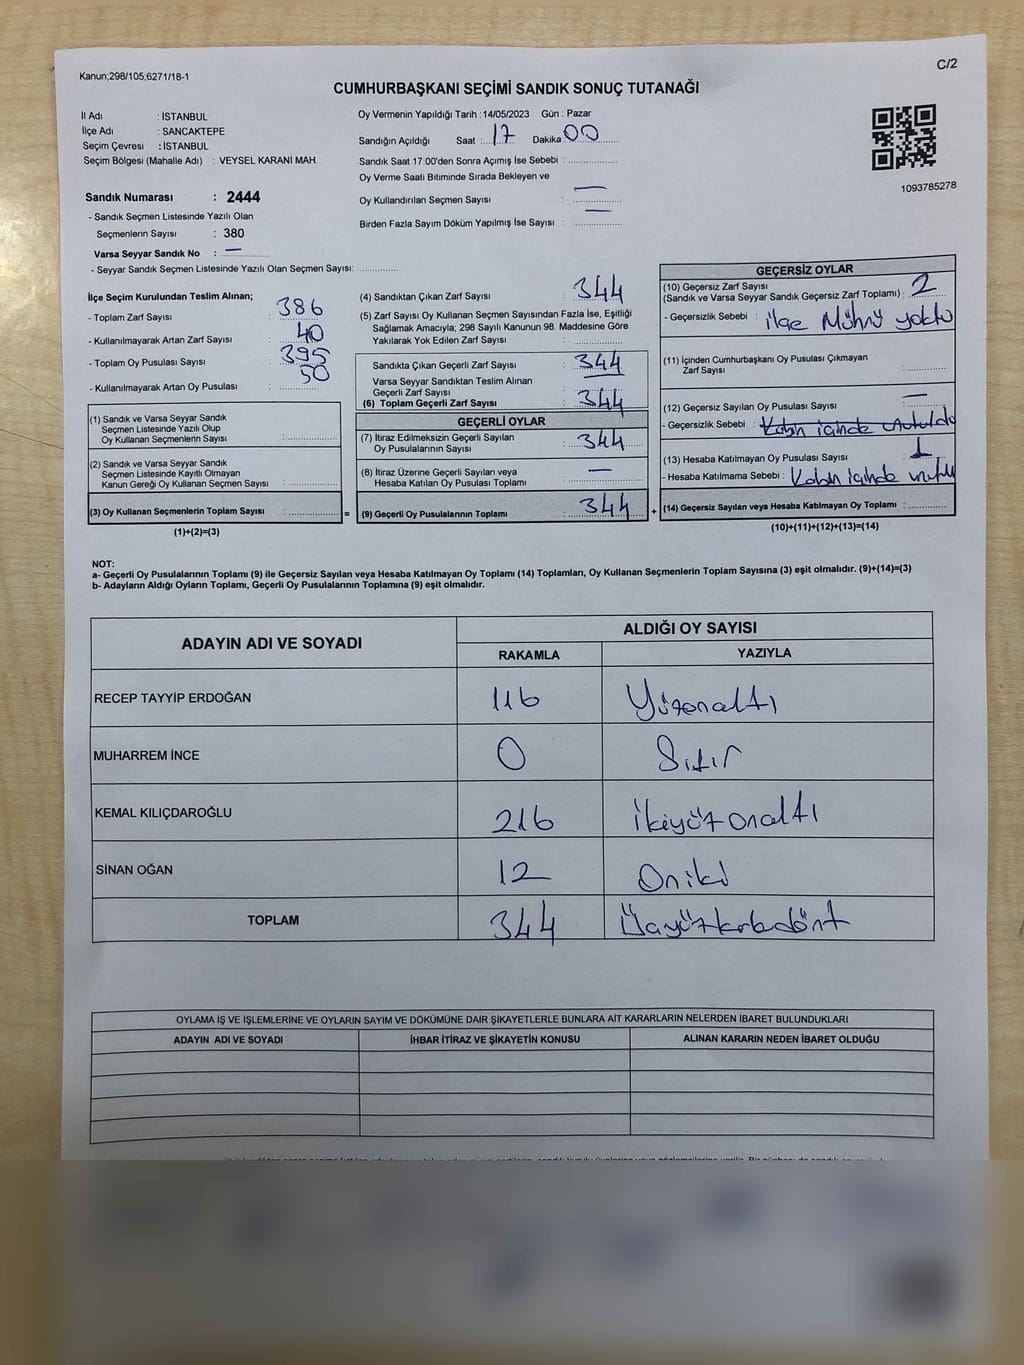 Kanun;298/105;6271/18-1
C/2
CUMHURBAŞKANI SEÇİMİ SANDIK SONUÇ TUTANAĞI
İl Adı : İSTANBUL
İlçe Adı : SANCAKTEPE
Seçim Çevresi : İSTANBUL
Seçim Bölgesi (Mahalle Adı) : VEYSEL KARANİ MAH.
Sandık Numarası : 2444
- Sandık Seçmen Listesinde Yazılı Olan
Seçmenlerin Sayısı : 380
Varsa Seyyar Sandık No : —
- Seyyar Sandık Seçmen Listesinde Yazılı Olan Seçmen Sayısı:
Oy Vermenin Yapıldığı Tarih :14/05/2023 Gün : Pazar
Sandığın Açıldığı Saat : 17 Dakika 00
Sandık Saat 17.00'den Sonra Açımış İse Sebebi :
Oy Verme Saati Bitiminde Sırada Bekleyen ve
Oy Kullandırılan Seçmen Sayısı : —
Birden Fazla Sayım Döküm Yapılmış İse Sayısı : —
1093785278
İlçe Seçim Kurulundan Teslim Alınan;
- Toplam Zarf Sayısı : 386
- Kullanılmayarak Artan Zarf Sayısı : 40
- Toplam Oy Pusulası Sayısı : 395
- Kullanılmayarak Artan Oy Pusulası : 50
(1) Sandık ve Varsa Seyyar Sandık
Seçmen Listesinde Yazılı Olup
Oy Kullanan Seçmenlerin Sayısı :
(2) Sandık ve Varsa Seyyar Sandık
Seçmen Listesinde Kayıtlı Olmayan
Kanun Gereği Oy Kullanan Seçmen Sayısı :
(3) Oy Kullanan Seçmenlerin Toplam Sayısı : =
(1)+(2)=(3)
(4) Sandıktan Çıkan Zarf Sayısı : 344
(5) Zarf Sayısı Oy Kullanan Seçmen Sayısından Fazla İse, Eşitliği
Sağlamak Amacıyla; 298 Sayılı Kanunun 98. Maddesine Göre
Yakılarak Yok Edilen Zarf Sayısı :
Sandıkta Çıkan Geçerli Zarf Sayısı : 344
Varsa Seyyar Sandıktan Teslim Alınan
Geçerli Zarf Sayısı : —
(6) Toplam Geçerli Zarf Sayısı : 344
GEÇERLİ OYLAR
(7) İtiraz Edilmeksizin Geçerli Sayılan
Oy Pusulalarının Sayısı : 344
(8) İtiraz Üzerine Geçerli Sayılan veya
Hesaba Katılan Oy Pusulası Toplamı : —
(9) Geçerli Oy Pusulalarının Toplamı : 344 +
GEÇERSİZ OYLAR
(10) Geçersiz Zarf Sayısı
(Sandık ve Varsa Seyyar Sandık Geçersiz Zarf Toplamı) : 2
- Geçersizlik Sebebi : ilçe Mührü yoktu
(11) İçinden Cumhurbaşkanı Oy Pusulası Çıkmayan
Zarf Sayısı :
(12) Geçersiz Sayılan Oy Pusulası Sayısı : —
- Geçersizlik Sebebi : Kabin içinde unutuldu
(13) Hesaba Katılmayan Oy Pusulası Sayısı : 1
- Hesaba Katılmama Sebebi : Kabin içinde
(14) Geçersiz Sayılan veya Hesaba Katılmayan Oy Toplamı :
(10)+(11)+(12)+(13)=(14)
NOT:
a- Geçerli Oy Pusulalarının Toplamı (9) ile Geçersiz Sayılan veya Hesaba Katılmayan Oy Toplamı (14) Toplamları, Oy Kullanan Seçmenlerin Toplam Sayısına (3) eşit olmalıdır. (9)+(14)=(3)
b- Adayların Aldığı Oyların Toplamı, Geçerli Oy Pusulalarının Toplamına (9) eşit olmalıdır.
ADAYIN ADI VE SOYADI
ALDIĞI OY SAYISI
RAKAMLA YAZIYLA
RECEP TAYYİP ERDOĞAN 116 Yüzonaltı
MUHARREM İNCE 0 Sıfır
KEMAL KILIÇDAROĞLU 216 ikiyüz onaltı
SİNAN OĞAN 12 Oniki
TOPLAM 344 Üçyüzkırkdört
OYLAMA İŞ VE İŞLEMLERİNE VE OYLARIN SAYIM VE DÖKÜMÜNE DAİR ŞİKAYETLERLE BUNLARA AİT KARARLARIN NELERDEN İBARET BULUNDUKLARI
ADAYIN ADI VE SOYADI
İHBAR İTİRAZ VE ŞİKAYETİN KONUSU
ALINAN KARARIN NEDEN İBARET OLDUĞU